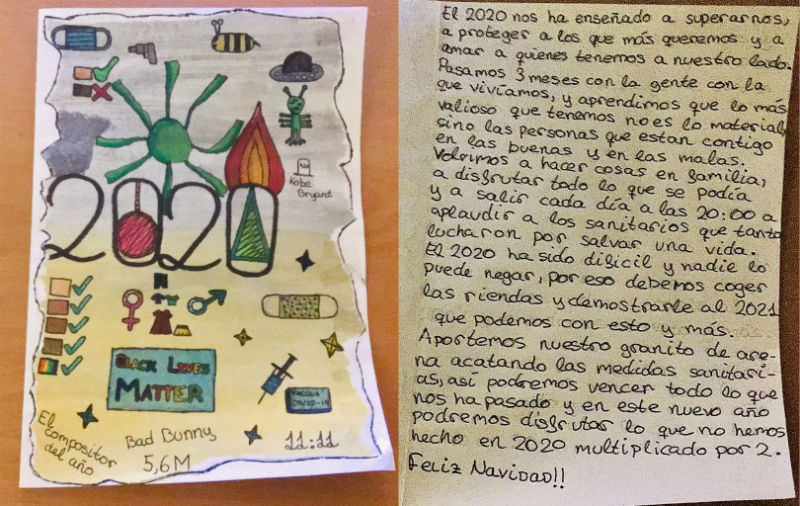 Kobe
Bryant
2020
BLACK LIVES
MATTER
VACUNA
COVID-19
El
compositor
del año
Bad Bunny
5,6 M
11:11
El 2020 nos ha enseñado a superarnos,
a proteger a los que más queremos y a
amar a quienes tenemos a nuestro lado.
Pasamos 3 meses con la gente con la
que vivíamos, y aprendimos que lo más
valioso que tenemos no es lo material,
sino las personas que estan contigo
en las buenas y en las malas.
Volvimos a hacer cosas en familia,
a disfrutar todo lo que se podía
y a salir cada día a las 20:00 a
aplaudir a los sanitarios que tanto
lucharon por salvar una vida.
El 2020 ha sido difícil y nadie lo
puede negar, por eso debemos coger
las riendas y demostrarle al 2021
que podemos con esto y más.
Aportemos nuestro granito de are-
na acatando las medidas sanitari-
as, así podremos vencer todo lo que
nos ha pasado y en este nuevo año
podremos disfrutar lo que no hemos
hecho en 2020 multiplicado por 2.
Feliz Navidad!!